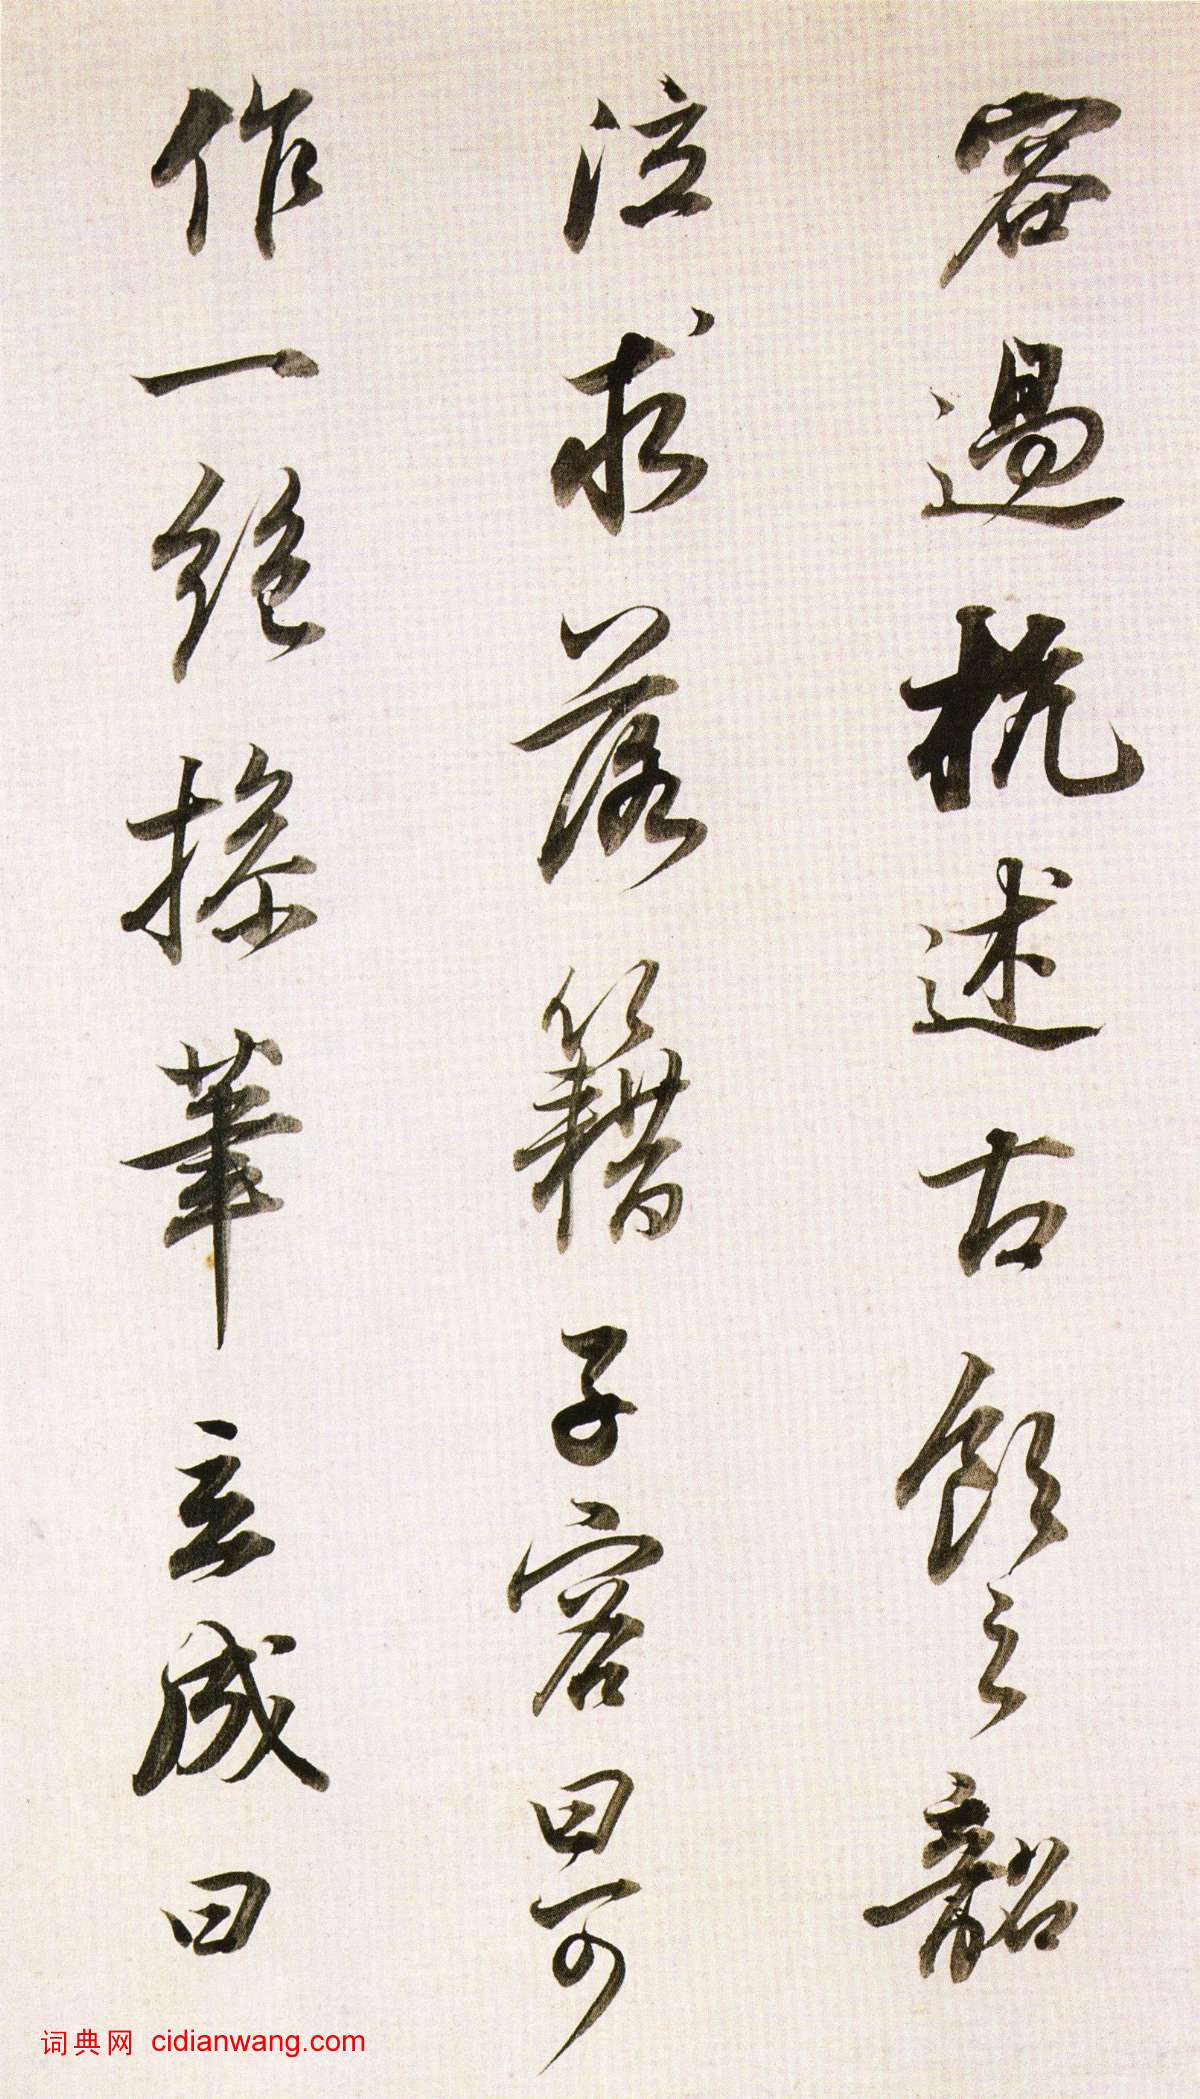 容過杭述古飲之韶
泣求落籍子容曰可
作一絶操筆立成曰
词典网 cidianwang.com